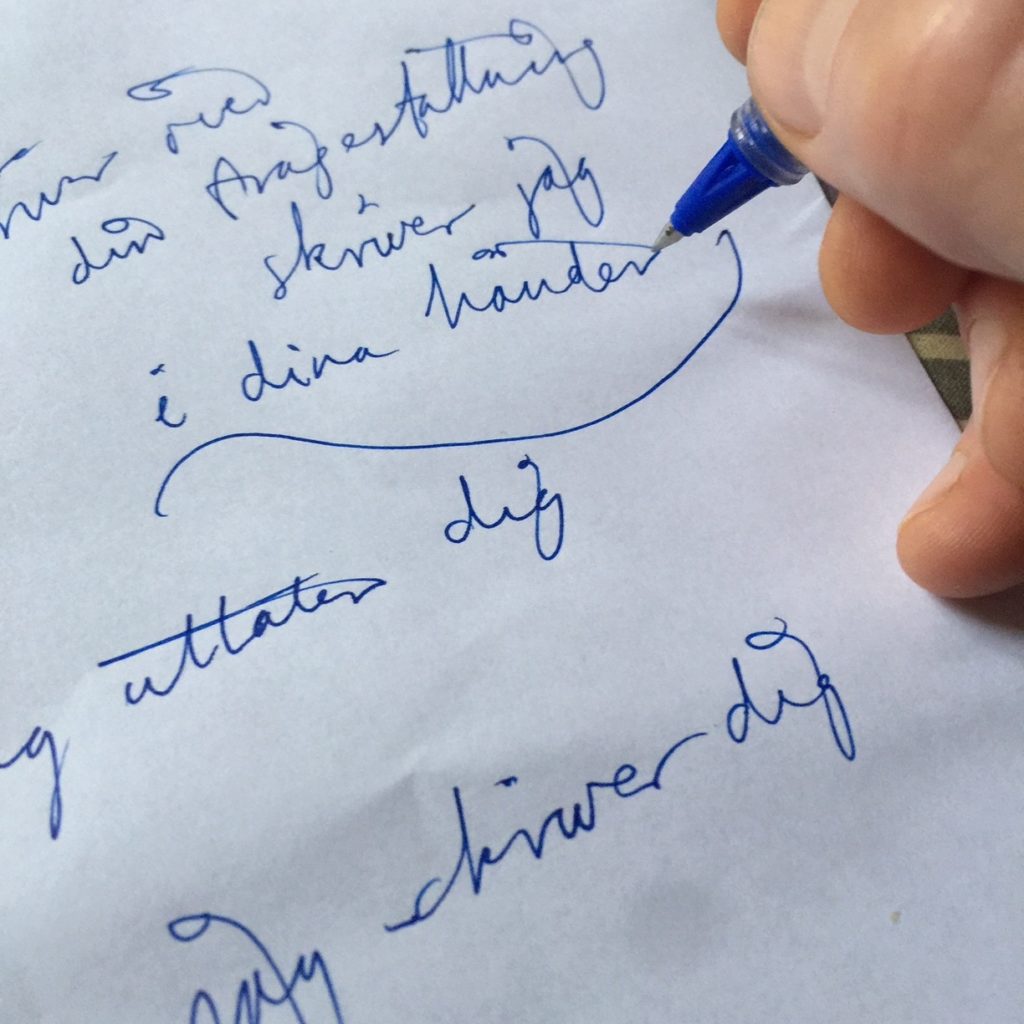 med
din frågeställning
skriver jag
i dina händer
dig
uttater
jag skriver dig